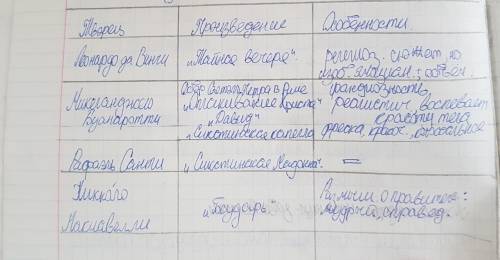 Творец Произведение Особенности.
Леонардо да Винчи „Тайная вечеря". религиоз. сюжет но
изоб. эмоции. ; объём.
Микеланджело Собор Святого Петра в Риме грандиозность,
„Оплакивание Христа" реалистич, воспевает
Буанаротти „Давид" красоту тела
„Сикстинская капелла фреска,
Рафаэль Санти „Сикстинская Мадонна". =
Никколо
„Государь Размыш. о правителе:
Макиавелли мудрый, справед.